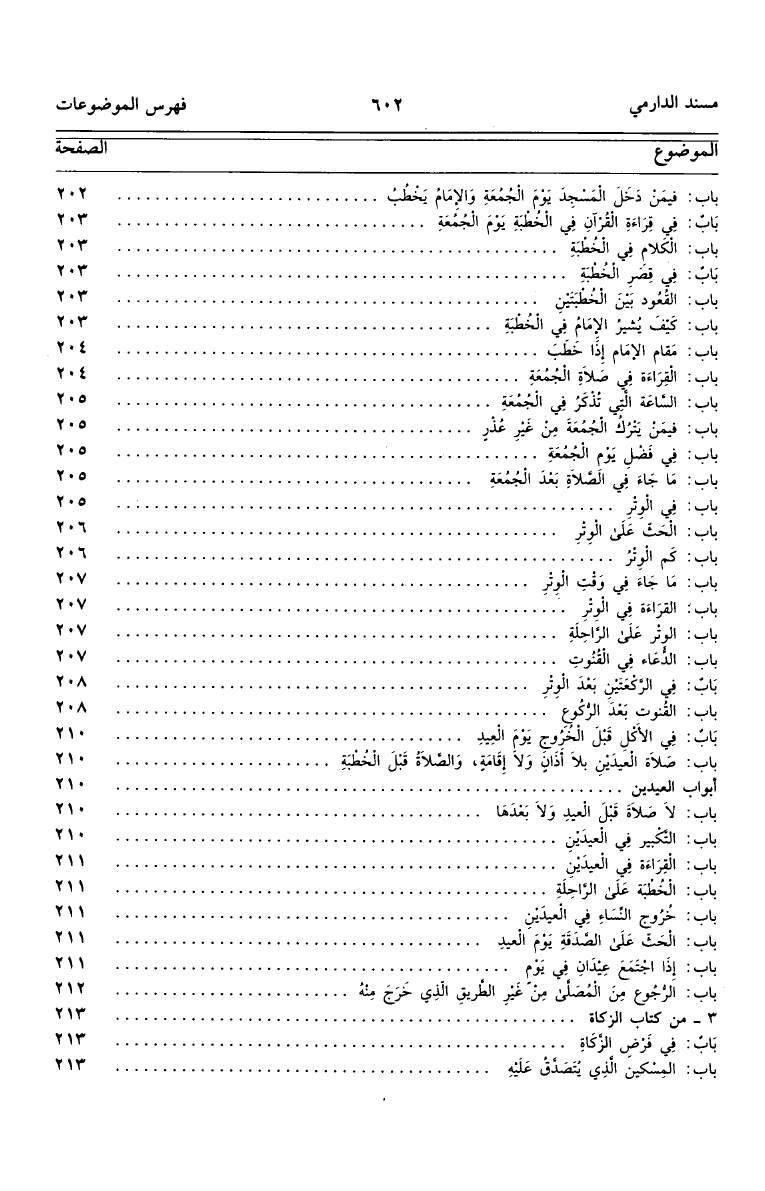 مسند الدارمي ٦٠٢ فهرس الموضوعات
الموضوع الصفحة
باب: فيمَنْ دَخَلَ الْمَسْجِدَ يَوْمَ الْجُمُعَةِ وَالإمَامُ يَخْطُبُ ............................ ٢٠٢
بَابٌ: فِي قِرَاءَةِ الْقُرْآنِ فِي الْخُطْبَةِ يَوْمَ الْجُمُعَةِ ................................. ٢٠٣
باب: الْكَلام فِي الْخُطْبَةِ ............................................... ٢٠٣
بَابٌ: فِي قِصَرِ الْخُطْبَةِ ............................................... ٢٠٣
باب: القُعُود بَيْنَ الْخُطْبَتَيْنِ ............................................ ٢٠٣
باب: كَيْفَ يُشيرُ الإمَامُ فِي الْخُطْبَةِ ........................................ ٢٠٣
باب: مَقام الإمَام إِذَا خَطَبَ ............................................ ٢٠٤
باب: الْقِرَاءَة فِي صَلاَةِ الْجُمُعَةِ .......................................... ٢٠٤
باب: السَّاعَة الَّتِي تُذْكَرُ فِي الْجُمُعَةِ ........................................ ٢٠٥
باب: فيمَنْ يَتْرُكُ الْجُمُعَةَ مِنْ غَيْرِ عُذْرٍ ...................................... ٢٠٥
باب: فِي فَضْلِ يَوْمِ الْجُمُعَةِ ............................................ ٢٠٥
باب: مَا جَاءَ فِي الصَّلاَةِ بَعْدَ الْجُمُعَةِ ...................................... ٢٠٥
باب: فِي الْوِتْرِ ..................................................... ٢٠٥
باب: الْحَثّ عَلَىٰ الْوِتْرِ ............................................... ٢٠٦
باب: كَم الْوِتْرُ .................................................... ٢٠٦
باب: مَا جَاءَ فِي وَقْتِ الْوِتْرِ ............................................ ٢٠٧
باب: القرَاءَة فِي الْوِتْرِ ................................................ ٢٠٧
باب: الوِتْر عَلَىٰ الرَّاحِلَةِ ............................................... ٢٠٧
باب: الدُّعَاء فِي الْقُنُوتِ ............................................... ٢٠٧
بَابٌ: فِي الرَّكْعَتَيْنِ بَعْدَ الْوِتْرِ ........................................... ٢٠٨
باب: القُنوت بَعْدَ الرُّكُوعِ .............................................. ٢٠٨
بَابٌ: فِي الأَكْلِ قَبْلَ الْخُرُوجِ يَوْمَ الْعِيدِ ...................................... ٢١٠
باب: صَلاَة الْعيدَيْنِ بلاَ أَذَانٍ وَلاَ إِقَامَةٍ، وَالصَّلاَةُ قَبْلَ الْخُطْبَةِ ...................... ٢١٠
أبواب العيدين ..................................................... ٢١٠
باب: لاَ صَلاَةَ قَبْلَ العيدِ وَلاَ بَعْدَهَا ....................................... ٢١٠
باب: التَّكْبير فِي الْعيدَيْنِ .............................................. ٢١٠
باب: الْقِرَاءَة فِي الْعيدَيْنِ .............................................. ٢١١
باب: الْخُطْبَة عَلَىٰ الرَّاحِلَةِ ............................................. ٢١١
باب: خُرُوج النِّسَاءِ فِي الْعيدَيْنِ .......................................... ٢١١
باب: الْحَثّ عَلَىٰ الصَّدَقَةِ يَوْمَ العيدِ ....................................... ٢١١
باب: إِذَا اجْتَمَعَ عِيْدَانِ فِي يَوْمٍ ......................................... ٢١١
باب: الرُّجُوع مِنَ الْمُصَلَّىٰ مِنْ غَيْرِ الطَّريقِ الَّذِي خَرَجَ مِنْهُ ......................... ٢١٢
٣ - من كتاب الزكاة ................................................. ٢١٣
بَابٌ: فِي فَرْضِ الزَّكَاةِ ............................................... ٢١٣
باب: المِسْكين الَّذِي يُتَصَدَّقُ عَلَيْهِ ........................................ ٢١٣